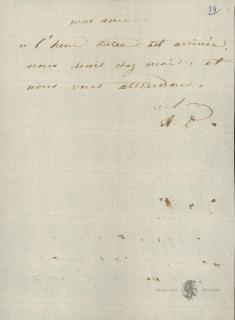 24
mon amie.
" l'heure dittes est arrivée
nous sommes chez moi. et
nous vous attendons.